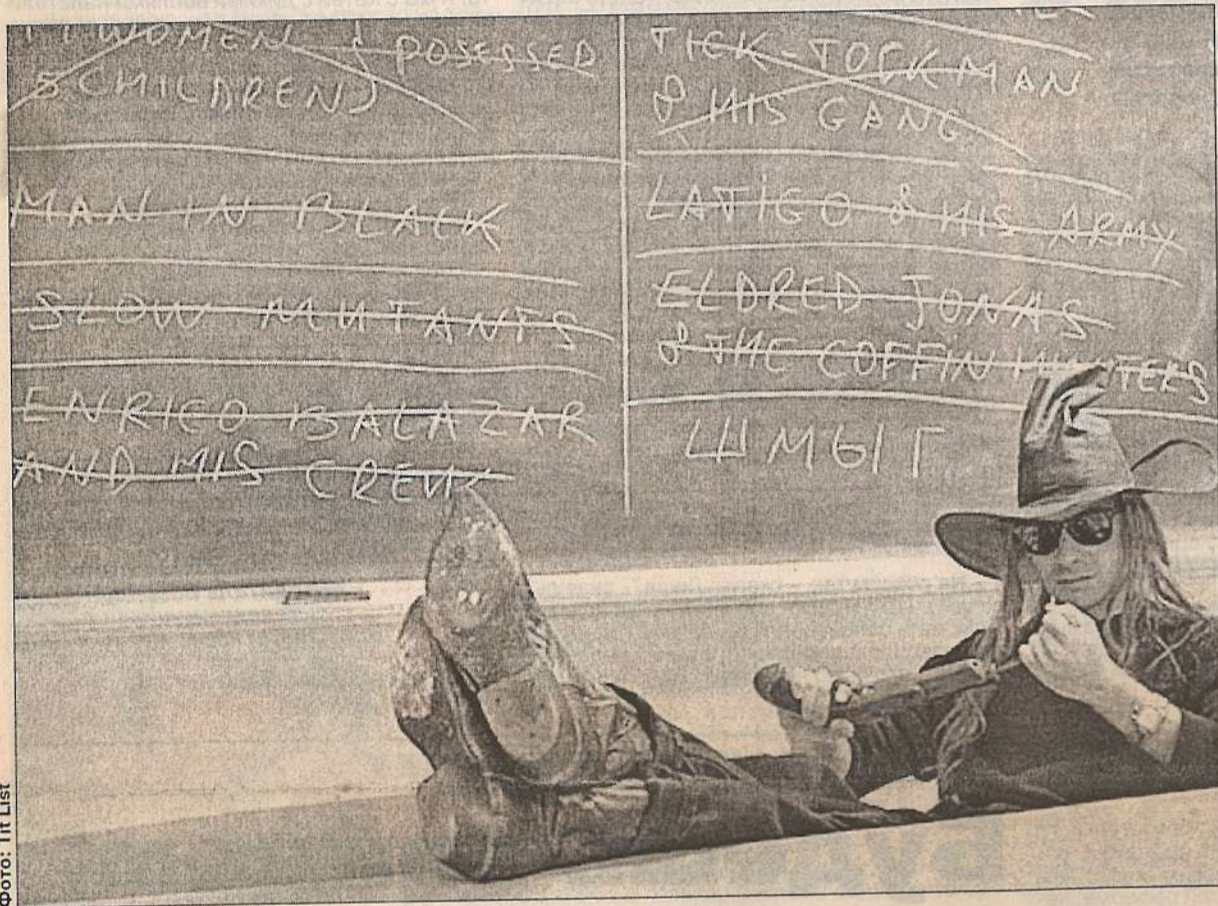 WOMEN & POSESSED
& CHILDREN)
MAN IN BLACK
SLOW MUTANTS
ENRICO BALAZAR
AND HIS CREW
TICK-TOCKMAN
& HIS GANG
LATIGO & HIS ARMY
ELDRED JONAS
& THE COFFIN HUNTERS
ШМЫГ
Фото: Tit List